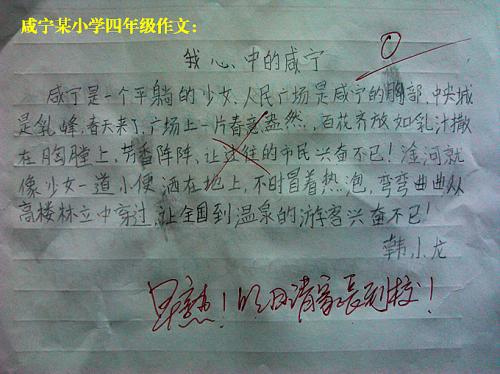 咸宁某小学四年级作文：
0
我心中的咸宁
咸宁是一个平躺的少女、人民广场是咸宁的胸部,中央城
是乳峰,春天来了,广场上一片春意盎然,百花齐放如乳汁撒
在胸膛上,芳香阵阵,让过往的市民兴奋不已!淦河就
像少女一道小便洒在地上,不时冒着热泡,弯弯曲曲从
高楼林立中穿过,让全国到温泉的游客兴奋不已!
韩小龙
早熟!明日请家长到校!